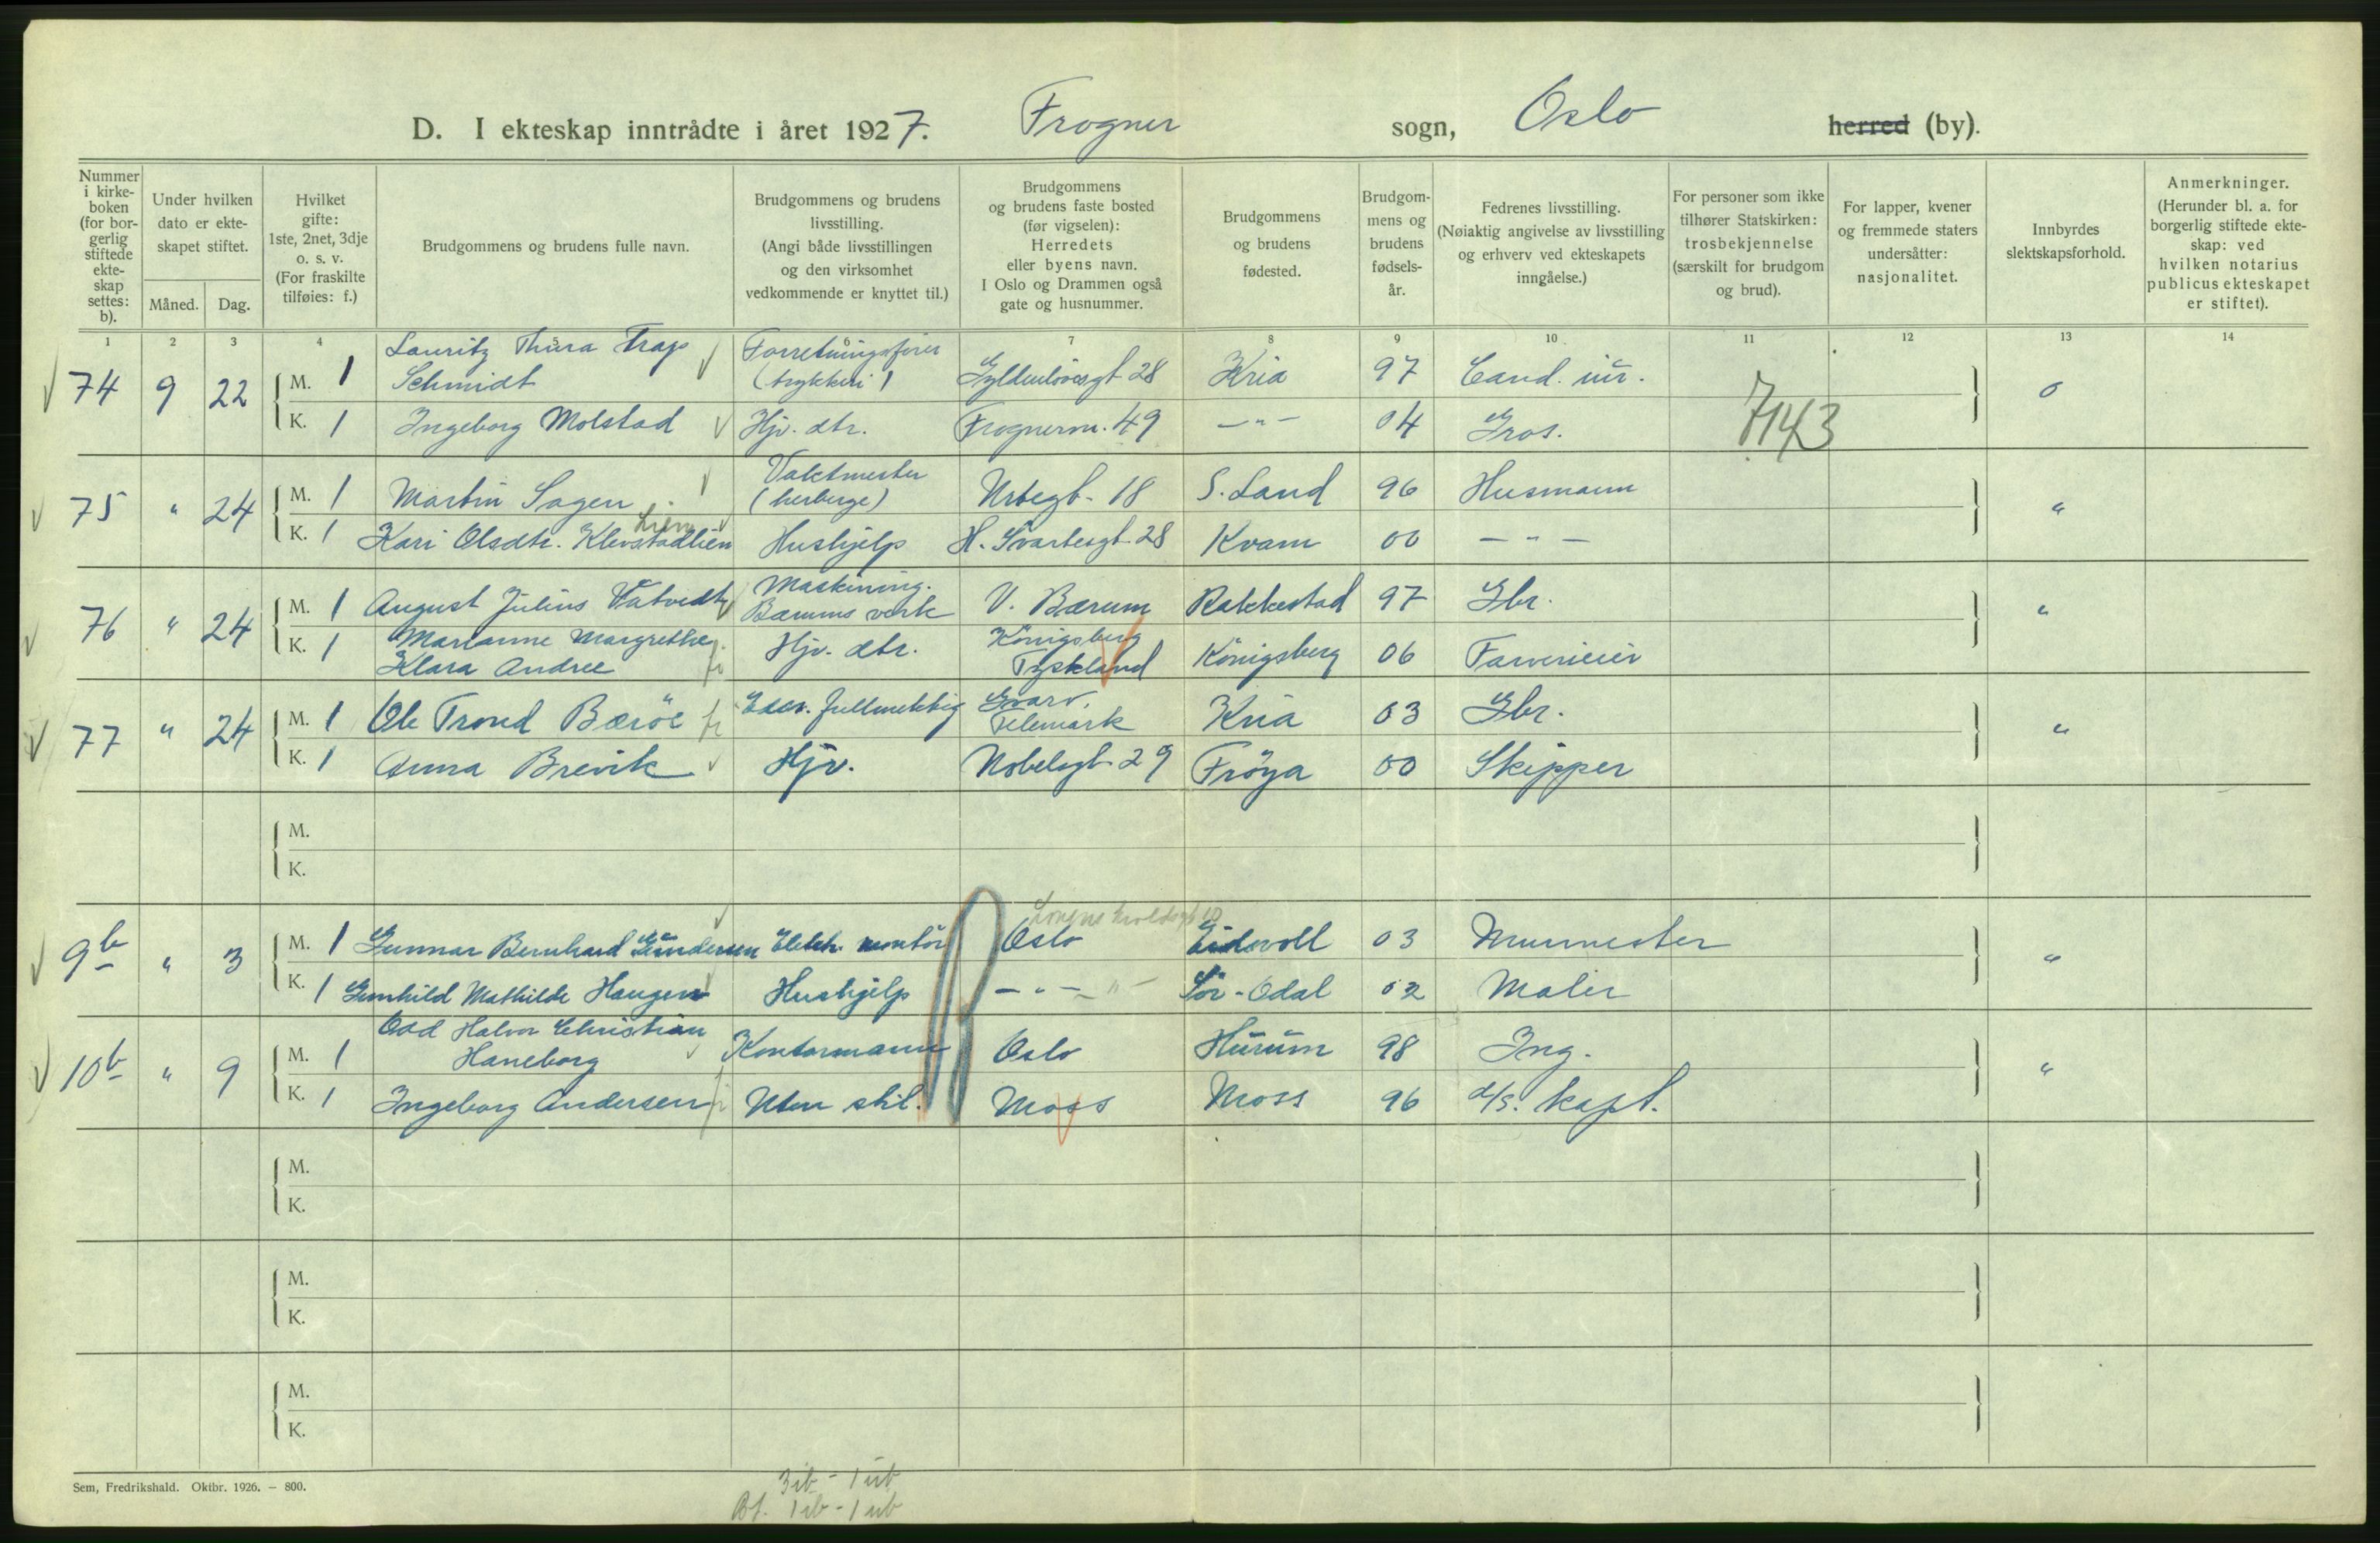 D. I ekteskap inntrådte i året 1927. Frogner sogn, Oslo herred (by).
Nummer i kirke-boken (for bor-gerlig stiftede ekte-skap settes: b).
Under hvilken dato er ekte-skapet stiftet.
Måned. Dag.
Hvilket gifte: 1ste, 2net, 3dje o. s. v. (For fraskilte tilføies: f.)
Brudgommens og brudens fulle navn.
Brudgommens og brudens livsstilling. (Angi både livsstillingen og den virksomhet vedkommende er knyttet til.)
Brudgommens og brudens faste bosted (før vigselen): Herredets eller byens navn. I Oslo og Drammen også gate og husnummer.
Brudgommens og brudens fødested.
Brudgom-mens og brudens fødsels-år.
Fedrenes livsstilling. (Nøiaktig angivelse av livsstilling og erhverv ved ekteskapets inngåelse.)
For personer som ikke tilhører Statskirken: trosbekjennelse (særskilt for brudgom og brud).
For lapper, kvener og fremmede staters undersåtter: nasjonalitet.
Innbyrdes slektskapsforhold.
Anmerkninger. (Herunder bl. a. for borgerlig stiftede ekte-skap: ved hvilken notarius publicus ekteskapet er stiftet).
1 2 3 4 7 8 9 10 11 12 13 14
74 9 22 M. 1 Lauritz Thüra Trap Schmidt Forretningsfører (trykkeri) Gyldenløvesgt 28 Kria 97 Cand. jur. 0
K. 1 Ingeborg Molstad Hjv. dtr. Frognerv. 49 – " – 04 Gros. 7143
75 " 24 M. 1 Martin Sagen Vaktmester (herberge) Urtegt. 18 S. Land 96 Husmann "
K. 1 Kari Olsdtr. Klevstadlien Lien Hushjelp H. Svartesgt. 28 Kvam 00 – " –
76 " 24 M. 1 August Julius Vatvedt Maskining. Bærums verk V. Bærum Rakkestad 97 Gbr. "
K. 1 Marianne Margrethe Klara Andree Hjv. dtr. Königsberg Tyskland Königsberg 06 Farverieier
77 " 24 M. 1 Ole Trond Bæröe fullmektig Gvarv, Telemark Kria 03 Gbr. "
K. 1 Anna Brevik Hjv. Nobelsgt 29 Fröya 00 Skipper
M.
K.
9b " 3 M. 1 Gunnar Bernhard Gundersen Elektr. montör Oslo Eidsvoll 03 Murmester "
K. 1 Gunhild Mathilde Haugen Hushjelp – " – Sör-Odal 02 Maler
10b " 9 M. 1 Odd Halvor Christian Haneborg Kontormann Oslo Hurum 98 Ing. "
K. 1 Ingeborg Andersen Uten stil. Moss Moss 96 d/s. kapt.
M.
K.
M.
K.
M.
K.
Sem, Fredrikshald. Oktbr. 1926. — 800.
3 ib - 1 ub
Bf. 1 ib - 1 ub